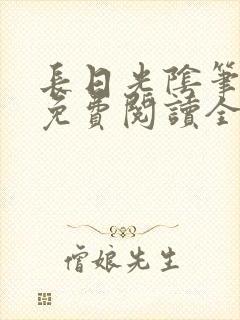 長日光陰筆
免費閱讀全
僧娘先生